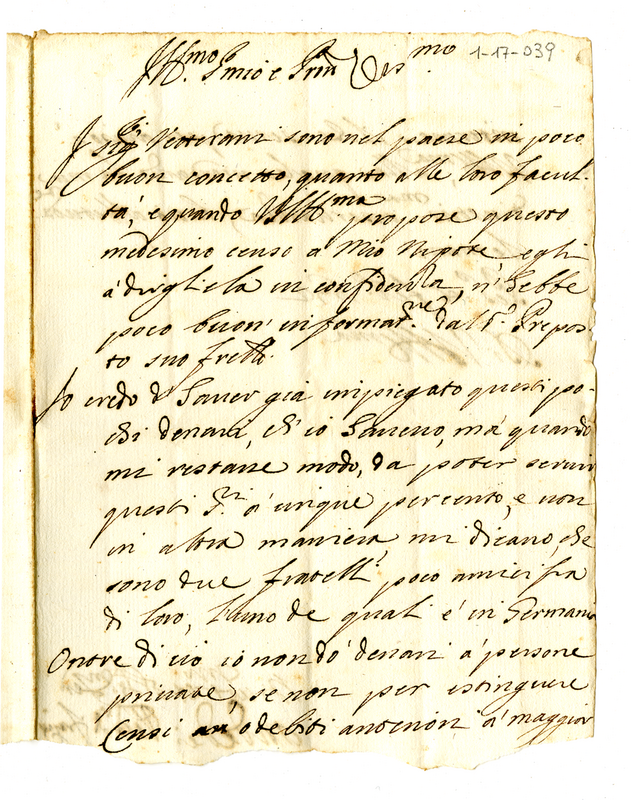 Ill.mo S. mio e Pron Oss.mo 1-17-039
I Sig.ri Veterani sono nel paese in poco
buon concetto, quanto alle loro facul-
tà, e quando V.S. Ill.ma propose questo
medesimo censo a Mio Nipote egli
à dirgliela in confidenza, n'hebbe
poco buon' informat.ne dal S.r Prepos-
to suo frello.
Io credo d'haver già inpiegato questi po-
chi denari, ch'io havevo, mà quando
mi restasse modo, da poter servir
questi S.ri à cinque percento, e non
in altra maniera mi dicano, che
sono due fratelli poco amici fra
di loro, l'uno de quali è in Germania
Ontre di ciò io non dò denari à persone
private, se non per estinguere
Censi o debiti anteriori à maggior